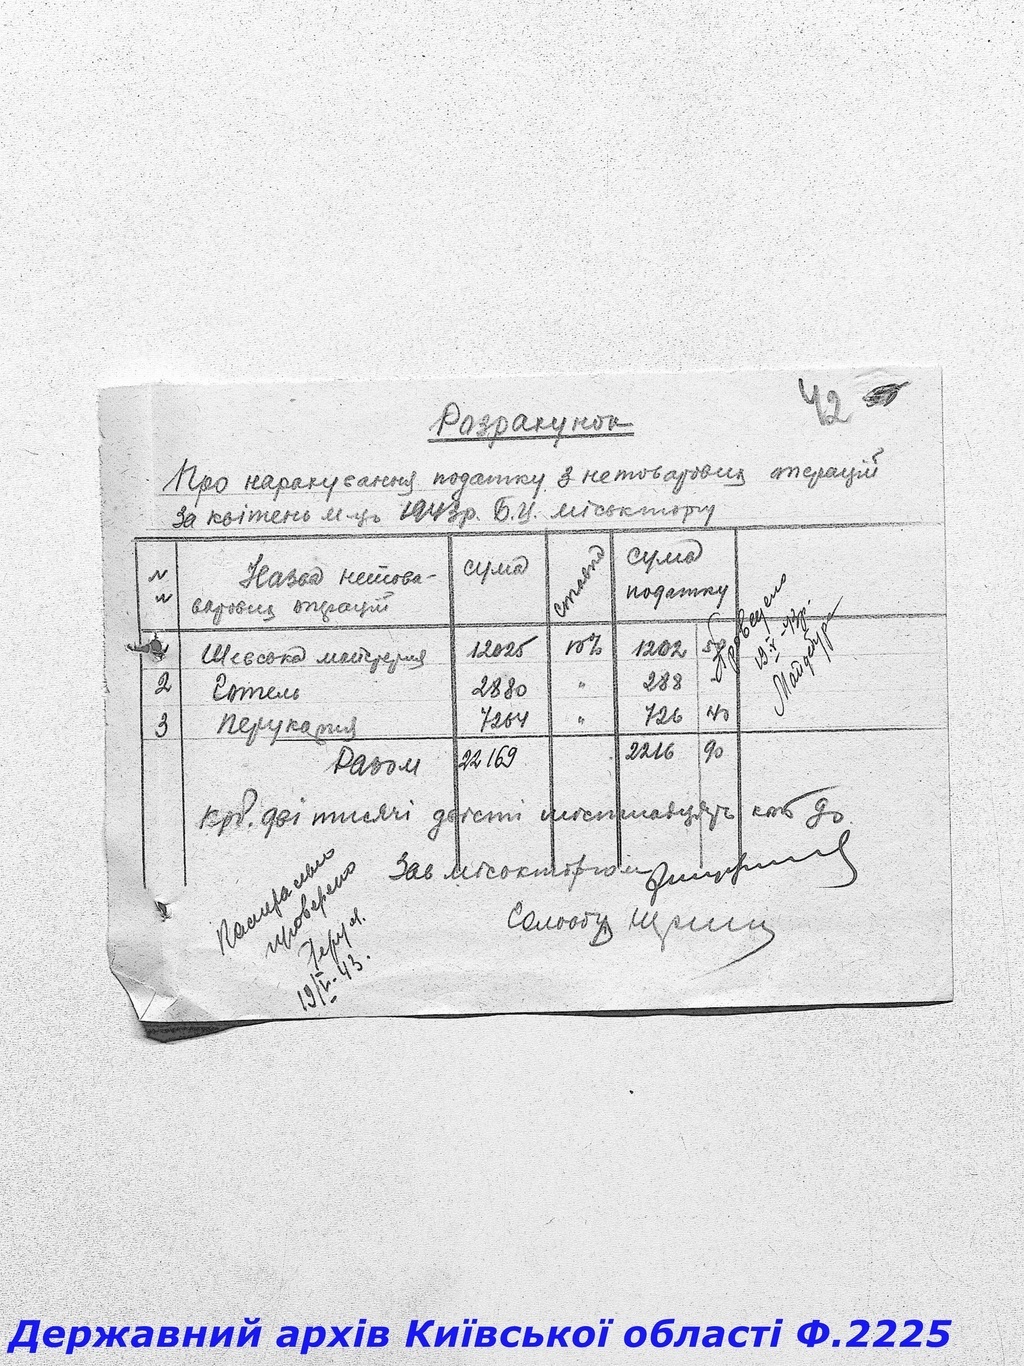 42
Розрахунок
Про нарахування податку з нетоварових операцій
за квітень м-ць 1943р. Б.Ц. міськторгу
№№ Назва нетова- сума ставка сума
варових операцій податку
1 Шевська майстерня 12025 10% 1202 50
2 Готель 2880 " 288 -
3 Перукарня 7264 " 726 40
Разом 22169 2216 90
Крб. дві тисячі двісті шістнадцять коп 90.
Зав міськторгом
Проведено
19/V-43р.
Майдебур
перевірено
19/V-43.
Державний архів Київської області Ф.2225